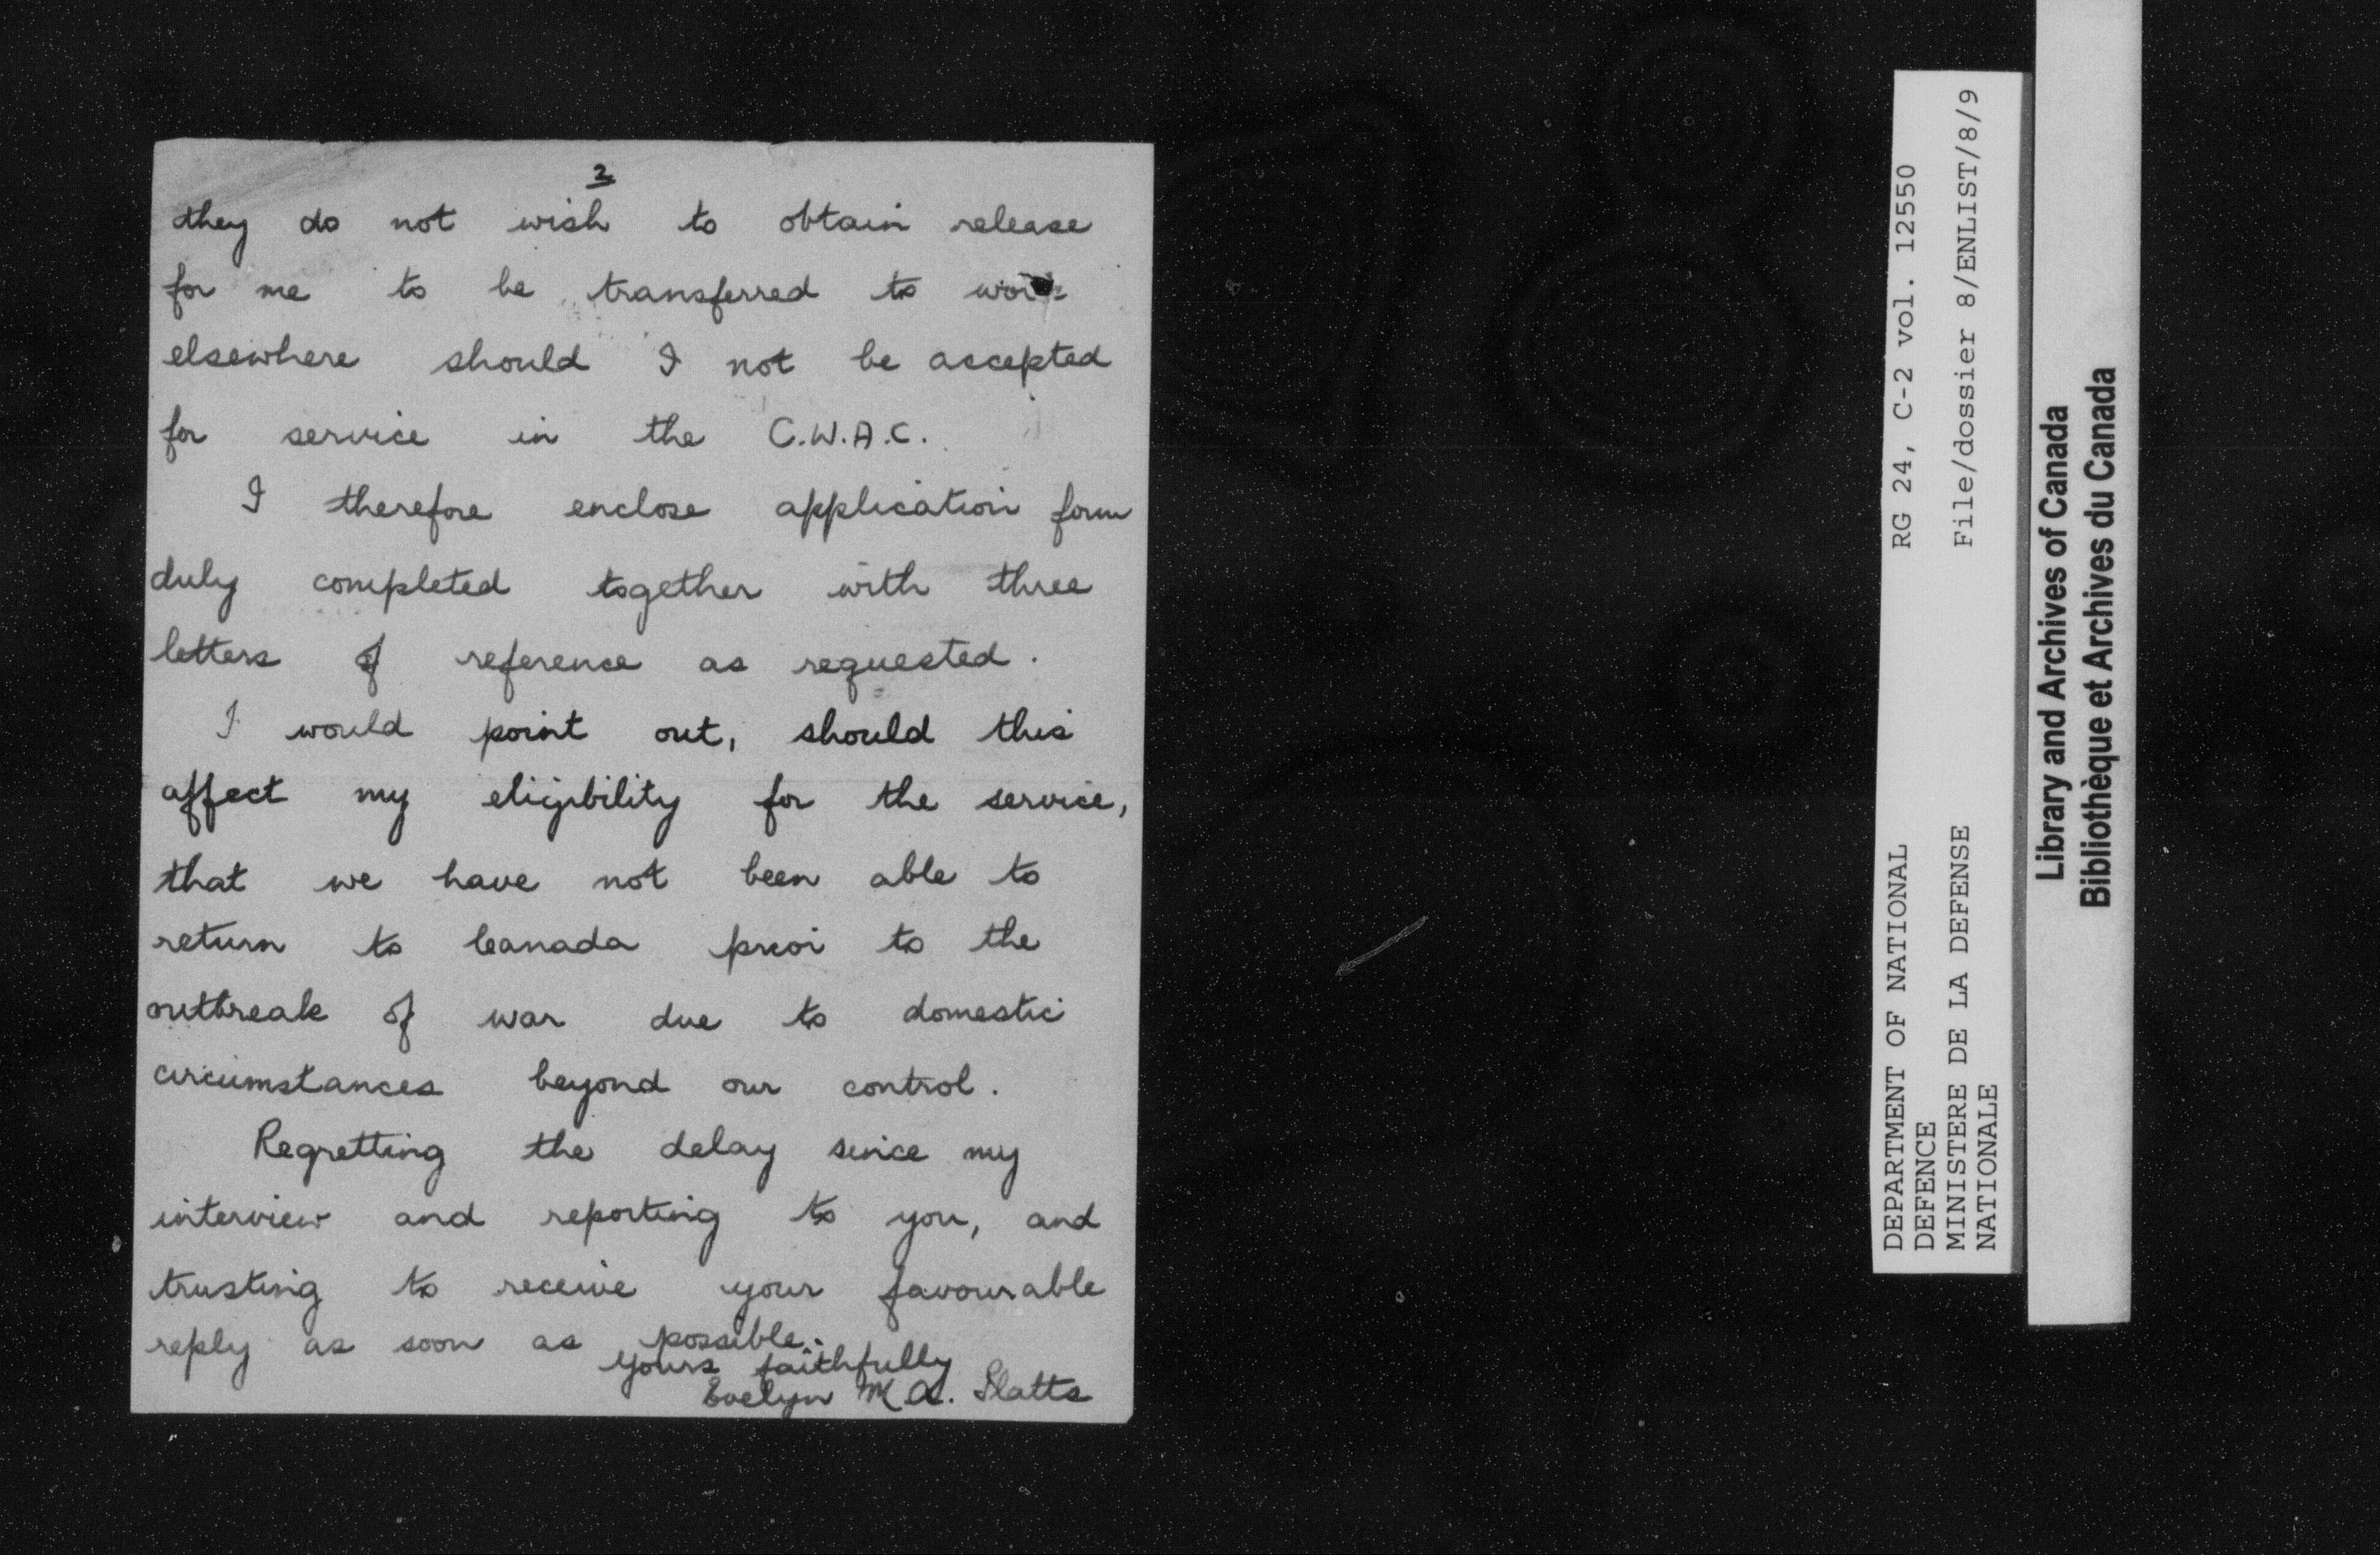 2
they do not wish to obtain release
for me to be transferred to work
elsewhere should I not be accepted
for service in the C.W.A.C.
I therefore enclose application form
duly completed together with three
letters of reference as requested.
I would point out, should this
affect my eligibility for the service,
that we have not been able to
return to Canada prior to the
outbreak of war due to domestic
circumstances beyond our control.
Regretting the delay since my
interview and reporting to you, and
trusting to receive your favourable
reply as soon as possible.
Yours faithfully
Evelyn M A. Slatts
DEPARTMENT OF NATIONAL
DEFENCE
MINISTERE DE LA DEFENSE
NATIONALE
RG 24, C-2 vol. 12550
File/dossier 8/ENLIST/8/9
Library and Archives of Canada
Bibliothèque et Archives du Canada